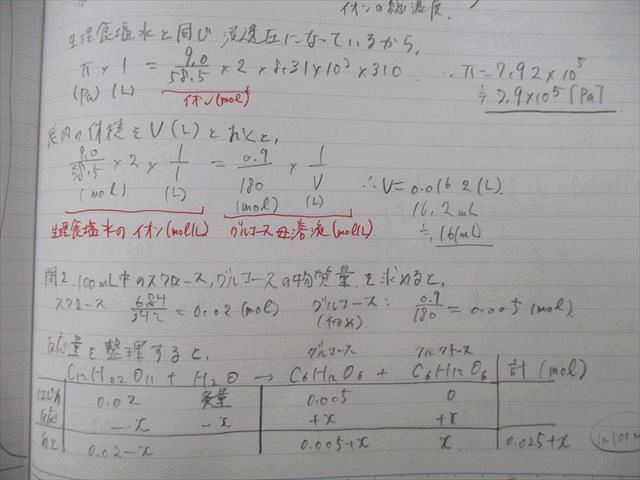 イオンの総濃度.
生理食塩水と同じ浸透圧になっているから,
π × 1 = 9.0/58.5 × 2 × 8.31×10³ × 310 ∴ π = 7.92 × 10⁵
(Pa) (L) イオン(mol) ≒ 7.9×10⁵ [Pa]
の体積を V (L) とおくと,
9.0/58.5 × 2 × 1/1 = 0.9/180 × 1/V ∴ V = 0.0162 (L)
(mol) (L) (mol) (L) 16.2 mL
生理食塩水のイオン(mol/L) グルコース 溶液(mol/L) ≒ 16(mL)
問2. 100mL中のスクロース, グルコースの物質量を求めると,
スクロース 6.84/342 = 0.02 (mol) グルコース: 0.9/180 = 0.005 (mol)
(初め)
反応量を整理すると, グルコース フルクトース
C12H22O11 + H2O → C6H12O6 + C6H12O6 計 (mol)
はじめ 0.02 多量 0.005 0
反応 -x -x +x +x
あと 0.02-x 0.005+x x 0.025+x